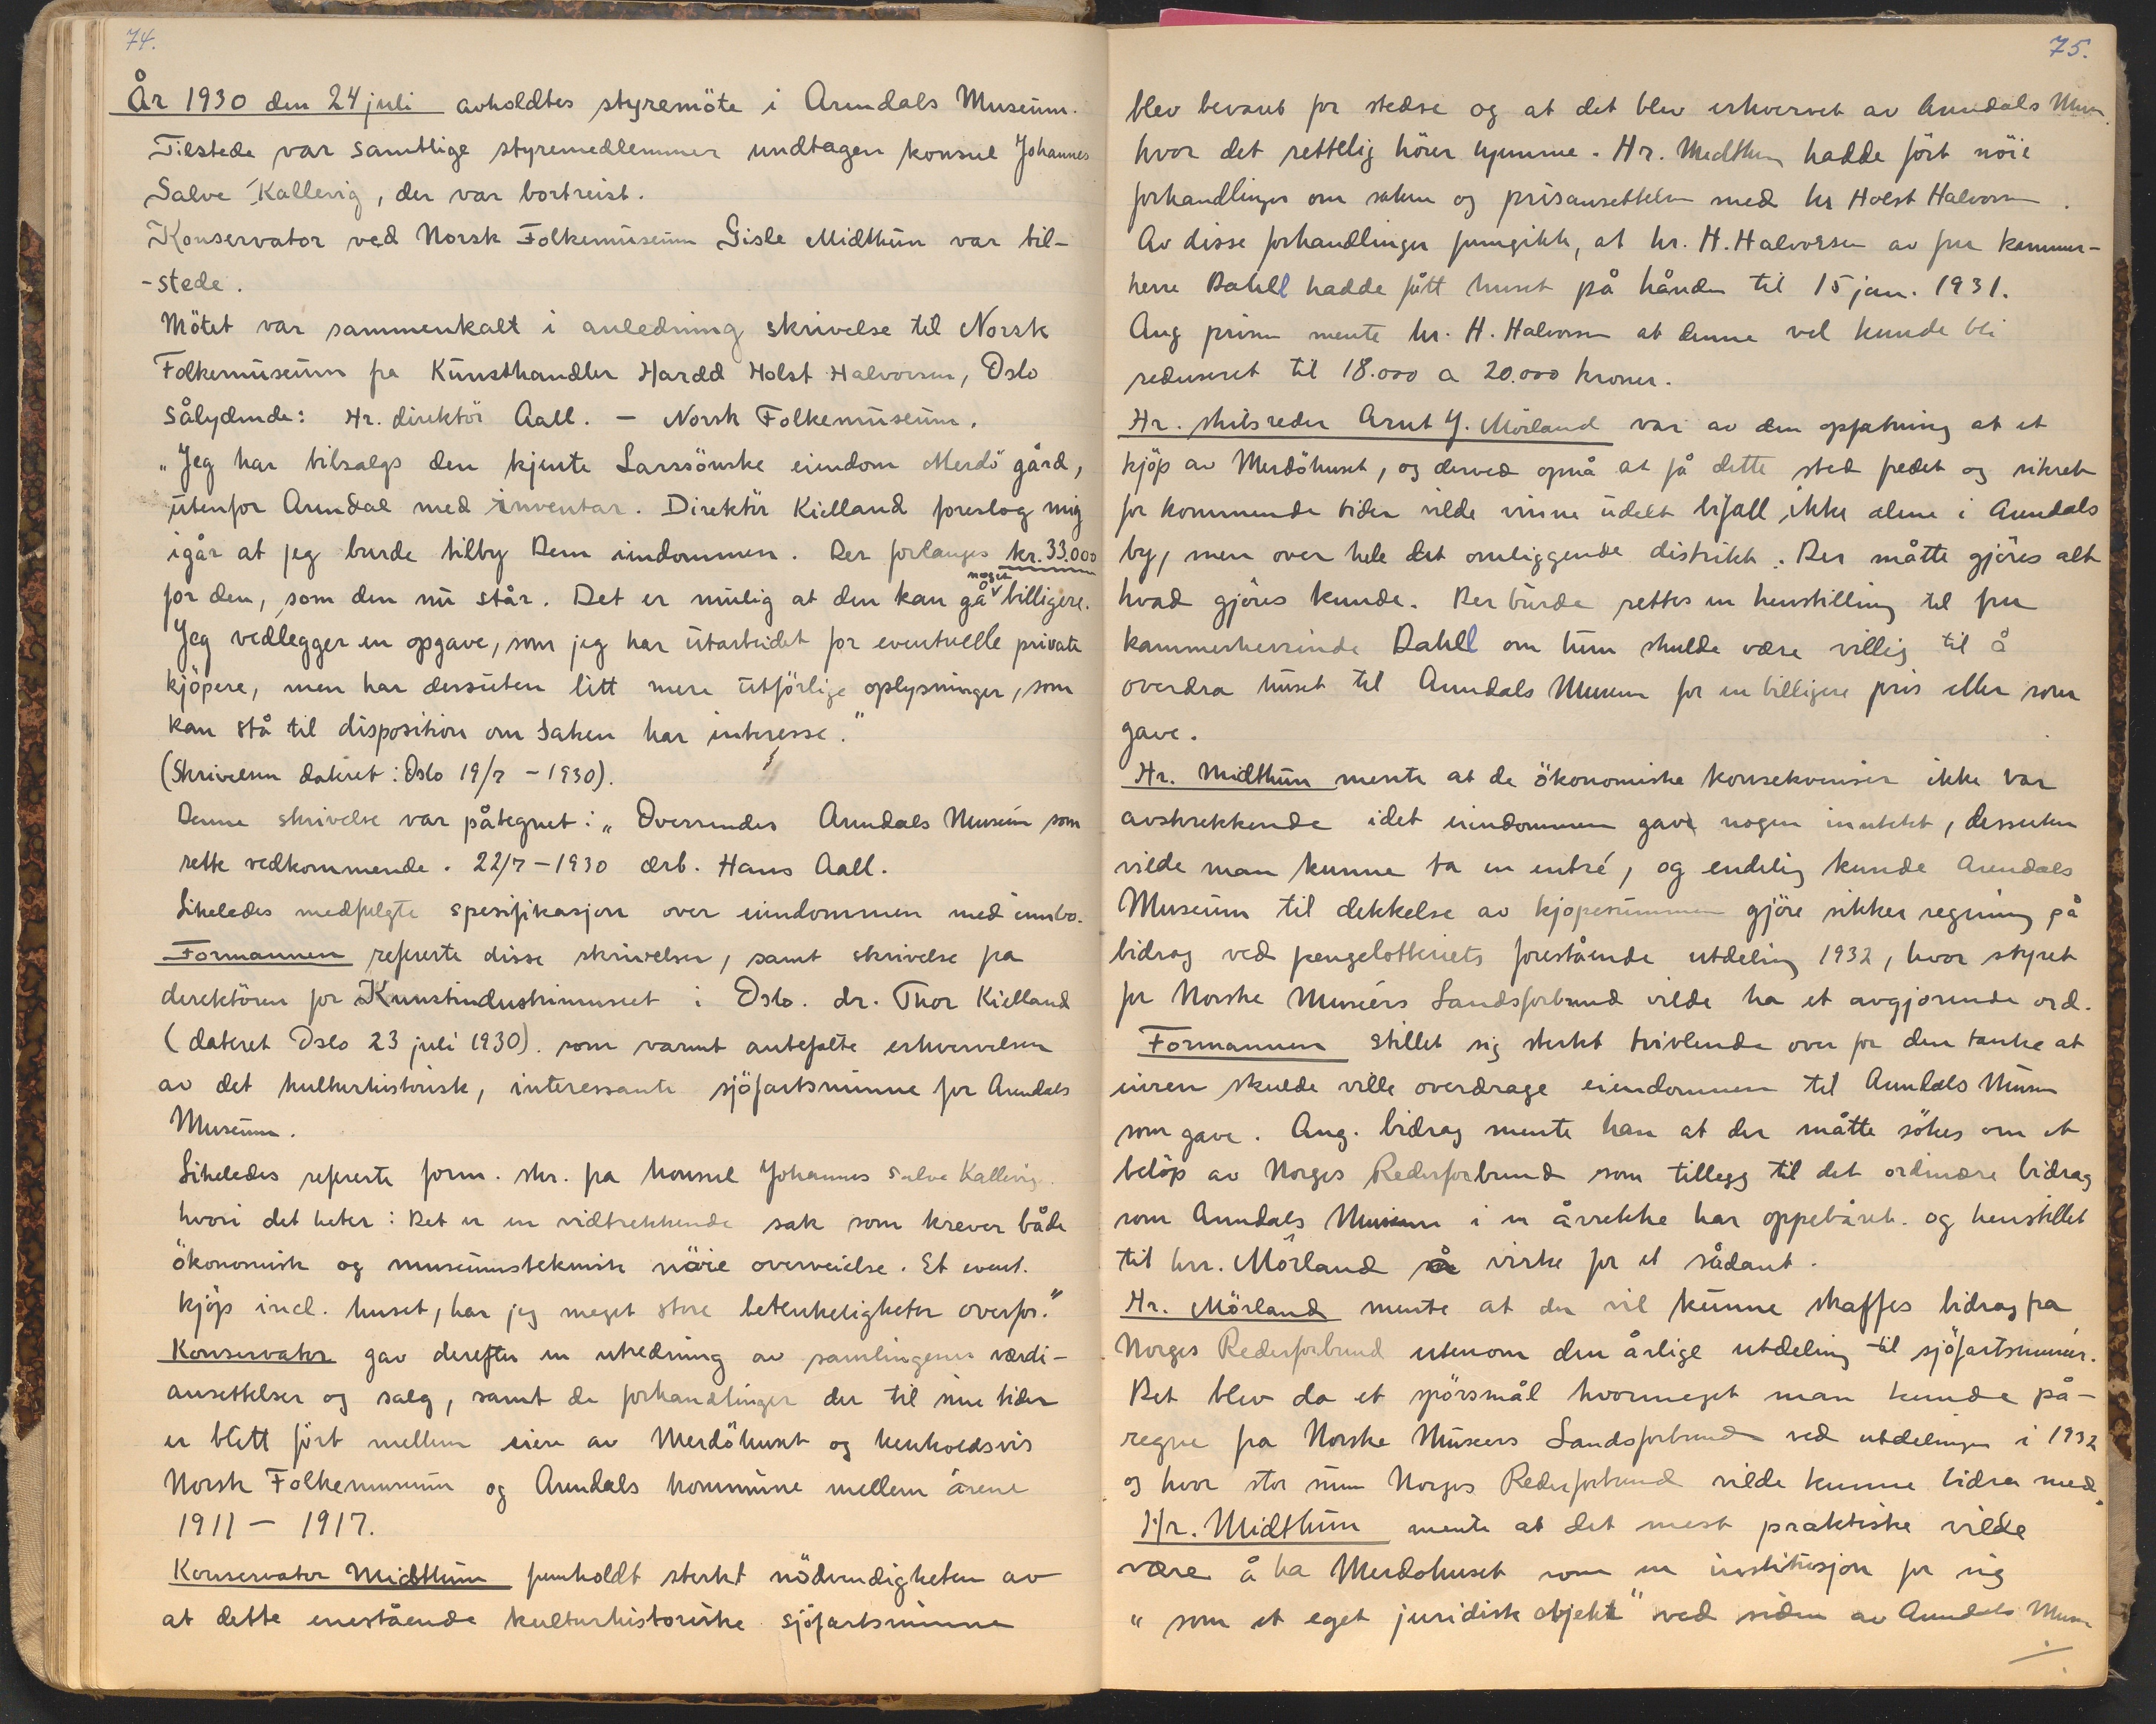 74.
År 1930 den 24 juli avholdtes styremöte i Arendals Museum.
Tilstede var samtlige styremedlemmer undtagen konsul Johannes
Salve Kallevig, der var bortreist.
Konservator ved Norsk Folkemuseum Gisle Midthun var til-
-stede.
Mötet var sammenkalt i anledning skrivelse til Norsk
Folkemuseum fra Kunsthandler Harald Holst Halvorsen, Oslo
sålydende: Hr. direktör Aall. — Norsk Folkemuseum.
„Jeg har tilsalgs den kjente Larssönske eiendom Merdö gård,
utenfor Arendal med inventar. Direktör Kielland foreslog mig
igår at jeg burde tilby Dem eiendommen. Der forlanges kr. 33.000
for den, som den nu står. Det er mulig at den kan gå noget billigere.
Jeg vedlegger en opgave, som jeg har utarbeidet for eventuelle private
kjöpere, men har dessuten litt mere utförlige oplysninger, som
kan stå til disposition om saken har interesse."
(Skrivelsen dateret: Oslo 19/7 - 1930).
Denne skrivelse var påtegnet: „Oversendes Arendals Museum som
rette vedkommende. 22/7 - 1930 ærb. Hans Aall.
Likeledes medfulgte spesifikasjon over eiendommen med innbo.
Formannen refererte disse skrivelser, samt skrivelse fra
derektören for Kunstindustrimuseet i Oslo. dr. Thor Kielland
(dateret Oslo 23 juli 1930). som varmt anbefalte erhvervelsen
av det kulturhistorisk, interessante sjöfartsminne for Arendals
Museum.
Likeledes refererte form. skr. fra konsul Johannes Salve Kallevig.
hvori det heter: Det er en vidtrekkende sak som krever både
ökonomisk og museumsteknisk nöie overveielse. Et event.
kjöp incl. huset, har jeg meget store betenkeligheter overfor."
Konservator gav derefter en utredning av samlingenes værdi-
ansettelser og salg, samt de forhandlinger der til sine tider
er blitt fört mellem eiere av Merdöhuset og henholdsvis
Norsk Folkemuseum og Arendals kommune mellem årene
1911 — 1917.
Konservator Midthun fremholdt sterkt nödvendigheten av
at dette enestående kulturhistoriske sjöfartsminne
75.
blev bevaret for stedse og at det blev erhvervet av Arendals Mus.
hvor det rettelig hörer hjemme. Hr. Midthun hadde fört nöie
forhandlinger om saken og prisansettelsen med hr Holst Halvorsen.
Av disse forhandlinger fremgikk, at hr. H. Halvorsen av fru kammer-
herre Dahll hadde fått huset på hånden til 15 jan. 1931.
Ang prisen mente hr. H. Halvorsen at denne vel kunde bli
reduseret til 18.000 a 20.000 kroner.
Hr. skibsreder Arnt J. Mörland var av den opfatning at et
kjöp av Merdöhuset, og derved opnå at få dette sted fredet og sikret
for kommende tider vilde vinne udelt bifall, ikke alene i Arendals
by, men over hele det omliggende distrikt. Der måtte gjöres alt
hvad gjöres kunde. Der burde rettes en henstilling til fru
kammerherrinde Dahll om hun skulde være villig til å
overdra huset til Arendals Museum for en billigere pris eller som
gave.
Hr. Midthun mente at de ökonomiske konsekvenser ikke var
avskrekkende idet eiendommen gav nogen inntekt, dessuten
vilde man kunne ta en entré, og endelig kunde Arendals
Museum til dekkelse av kjopesummen gjöre sikker regning på
bidrag ved pengelotteriets forestående utdeling 1932, hvor styret
for Norske Museers Landsforbund vilde ha et avgjorende ord.
Formannen stillet sig sterkt tvivlende over for den tanke at
eieren skulde ville overdrage eiendommen til Arendals Museum
som gave. Ang. bidrag mente han at der måtte sökes om et
belöp av Norges Rederforbund som tillegg til det ordinære bidrag
som Arendals Museum i en årrekke har oppebåret. og henstillet
til hrr. Mörland å virke for et sådant.
Hr. Mörland mente at der vil kunne skaffes bidrag fra
Norges Rederforbund utenom den årlige utdeling til sjöfartsmuséer.
Det blev da et spörsmål hvormeget man kunde på-
regne fra Norske Museers Landsforbund ved utdelingen i 1932
og hvor stor sum Norges Rederforbund vilde kunne bidra med.
Hr. Midthun mente at det mest praktiske vilde
være å ha Merdohuset som en institusjon for sig
„som et eget juridisk objekt" ved siden av Arendals Museum